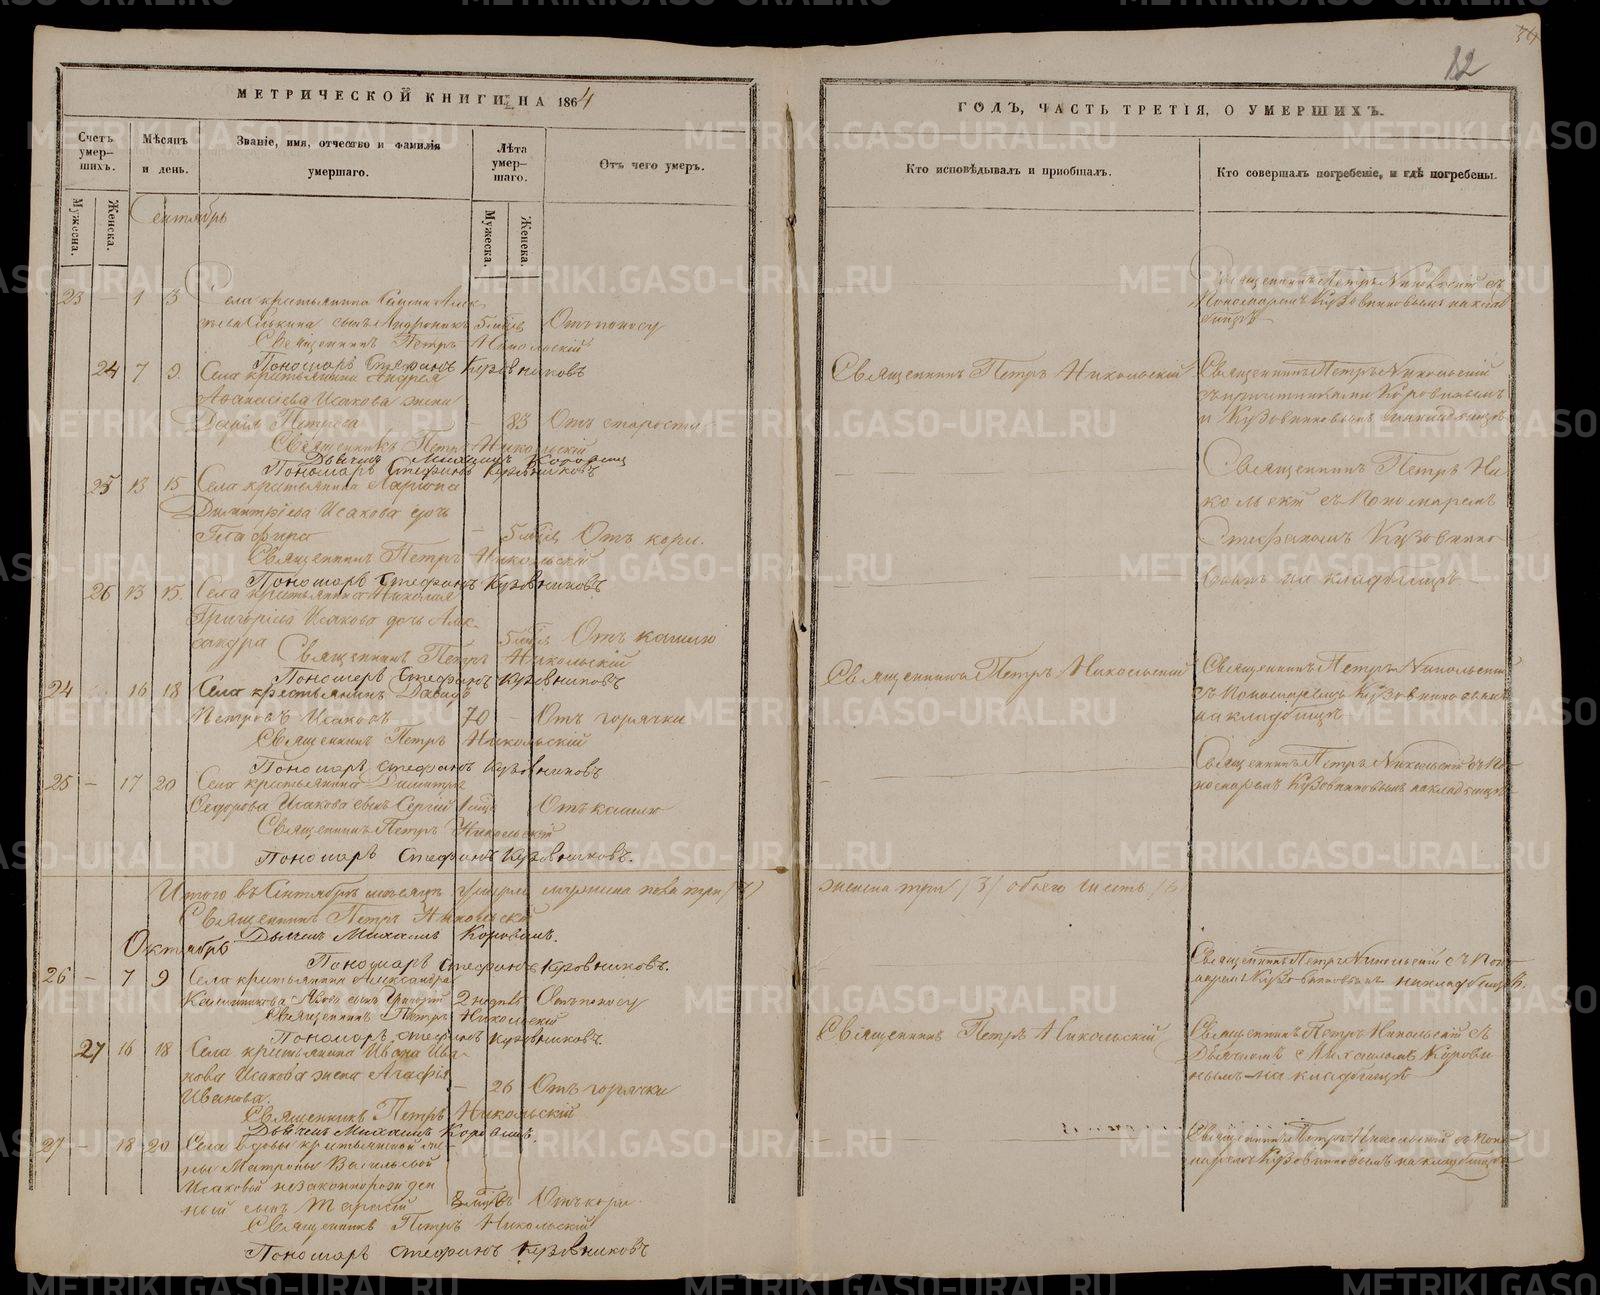 МЕТРИЧЕСКОЙ КНИГИ НА 1864
ГОДЪ, ЧАСТЬ ТРЕТІЯ, О УМЕРШИХЪ.
12
Счетъ умер-
шихъ.
Мѣсяцъ
и день.
Званіе, имя, отчество и фамилія
умершаго.
Лѣта
умер-
шаго.
Отъ чего умеръ.
Кто исповѣдывалъ и пріобщалъ.
Кто совершалъ погребеніе, и гдѣ погребены.
Мужеска.
Женска.
Мужеска.
Женска.
Сентябрь
23 – 1 3 Села крестьянина
сынъ Андроникъ 5 мѣс Отъ поносу
Священникъ Петръ Никольскій
Пономарь Стефанъ Кузовниковъ
Священникъ Петръ Никольскій съ
Пономаремъ Кузовниковымъ на клад
бищѣ
24 7 9 Села крестьянина Андрея
Афанасьева Исакова жена
Дарія Петрова – 83 Отъ старости
Священникъ Петръ Никольскій
Дьячекъ Михаилъ
Пономарь Стефанъ Кузовниковъ
Священникъ Петръ Никольскій
Священникъ Петръ Никольскій
съ причетниками Коровинымъ
и Кузовниковымъ на кладбищѣ
25 13 15 Села крестьянина Ларіона
Димитріева Исакова дочь
Глафира – 5 мѣс Отъ кори.
Священникъ Петръ Никольскій
Пономарь Стефанъ Кузовниковъ
Священникъ Петръ Ни
кольскій съ Пономаремъ
Стефаномъ Кузовнико
вымъ на кладбищѣ
26 13 15 Села крестьянина Николая
Григорьева Исакова дочь Алек
сандра 5 мѣс Отъ кашлю
Священникъ Петръ Никольскій
Пономарь Стефанъ Кузовниковъ
24 16 18 Села крестьянинъ Давидъ
Петровъ Исаковъ 70 – Отъ горячки
Священникъ Петръ Никольскій
Пономарь Стефанъ Кузовниковъ
Священникъ Петръ Никольскій
Священникъ Петръ Никольскій
съ Пономаремъ Кузовниковымъ
на кладбищѣ
25 – 17 20 Села крестьянина Димитрія
Федорова Исакова сынъ Сергій 1 мѣс Отъ кашлю
Священникъ Петръ Никольскій
Пономарь Стефанъ Кузовниковъ.
Священникъ Петръ Никольскій съ По
номаремъ Кузовниковымъ на кладбищѣ
Итого въ Сентябрѣ мѣсяцѣ умерло мужеска пола три (3)
женска три (3) обоего шесть (6)
Священникъ Петръ Никольскій
Дьячекъ Михаилъ Коровинъ.
Пономарь Стефанъ Кузовниковъ.
Октябрь
26 – 7 9 Села крестьянина Александра
сынъ Григорій 2 недѣл Отъ поносу
Священникъ Петръ Никольскій
Пономарь Стефанъ Кузовниковъ.
Священникъ Петръ Никольскій съ Пон
марем Кузовниковымъ на кладбищѣ.
27 16 18 Села крестьянина Ивана Ива
нова Исакова жена Агафія
Иванова. – 26 Отъ горячки
Священникъ Петръ Никольскій
Дьячекъ Михаилъ Коровинъ.
Священникъ Петръ Никольскій
Священникъ Петръ Никольскій съ
Дьячкомъ Михаиломъ Корови
нымъ на кладбищѣ
27 – 18 20 Села вдовы крестьянской же
ны Матроны Васильевой
Исаковой незаконнорожден
ный сынъ Тарасій 8 Отъ кори.
Священникъ Петръ Никольскій
Пономарь Стефанъ Кузовниковъ
Священникъ Петръ Никольскій съ Поно
маремъ Кузовниковымъ на кладбищѣ
METRIKI.GASO-URAL.RU